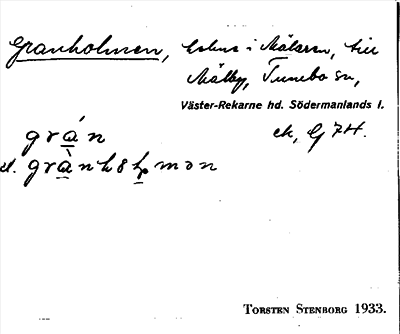 Granholmen, holme i Mälaren, till
Mälby, Tumbo sn,
Väster-Rekarne hd. Södermanlands l.
ek, G 7 H.
grán
el. grànhɵlmən
TORSTEN STENBORG 1933.